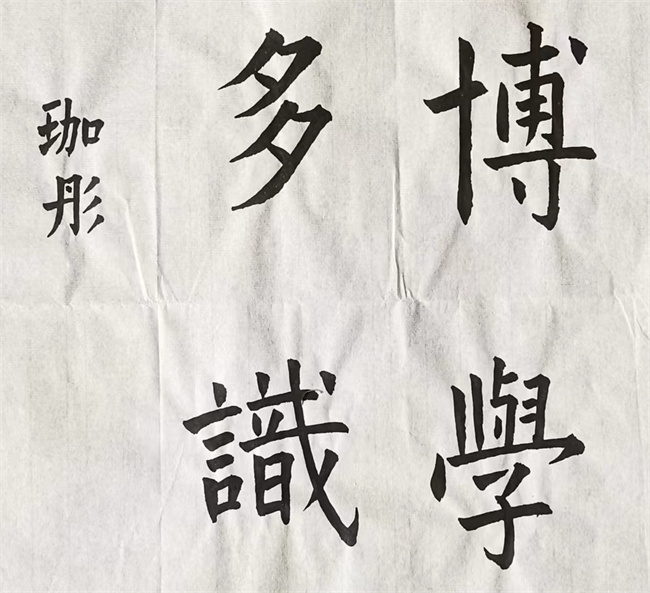 博學
多識
珈彤